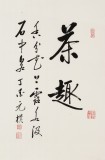 茶趣
香分花上露水汲
石中泉